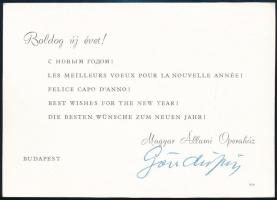 Boldog új évet!
С НОВЫМ ГОДОМ!
LES MEILLEURS VOEUX POUR LA NOUVELLE ANNÉE!
FELICE CAPO D'ANNO!
BEST WISHES FOR THE NEW YEAR!
DIE BESTEN WÜNSCHE ZUM NEUEN JAHR!
Magyar Állami Operaház
BUDAPEST